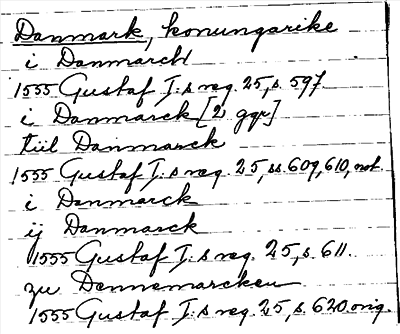 Danmark, konungarike
i Danmarch
1555 Gustaf I:s reg. 25, s. 597.
i Danmarck [2 ggr]
tiil Danmarck
1555 Gustaf I:s reg. 25, ss. 609, 610, not.
i Danmarck
ij Danmarck
1555 Gustaf I:s reg. 25, s. 611.
zu Dennemarcken
1555 Gustaf I:s reg. 25, s. 620 orig.